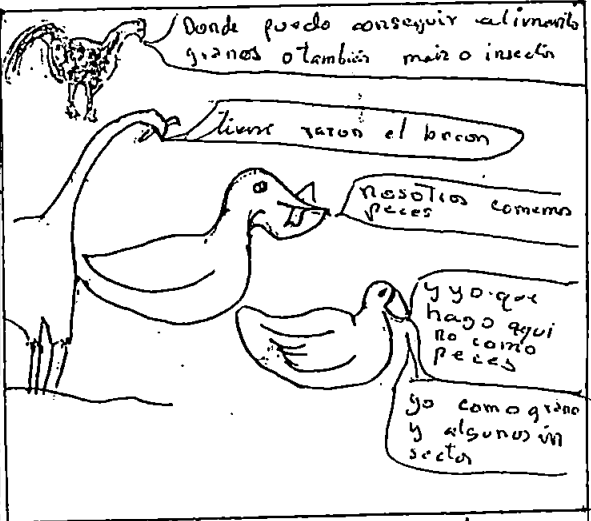 Donde puedo conseguir alimento
granos o también maiz o insectos
tiene razon el
nosotros comemos
peces
y yo que
hago aqui
no como
peces
yo como grano
y algunos in
sectos